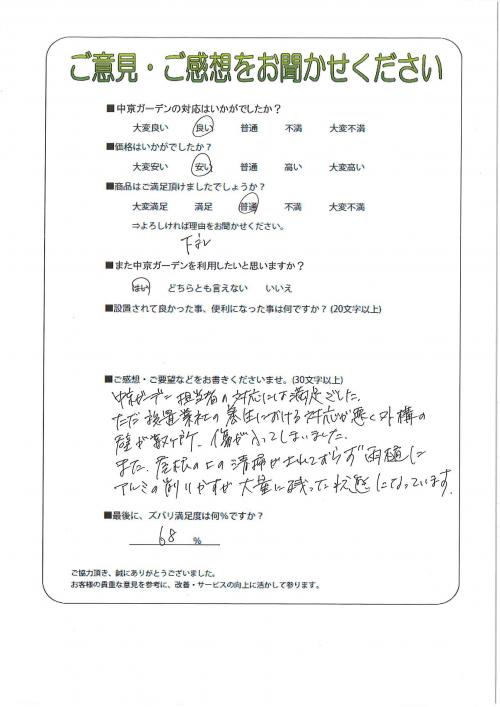 ご意見・ご感想をお聞かせください
■中京ガーデンの対応はいかがでしたか？
大変良い 良い 普通 不満 大変不満
■価格はいかがでしたか？
大変安い 安い 普通 高い 大変高い
■商品はご満足頂けましたでしょうか？
大変満足 満足 普通 不満 大変不満
⇒よろしければ理由をお聞かせください。
■また中京ガーデンを利用したいと思いますか？
はい どちらとも言えない いいえ
■設置されて良かった事、便利になった事は何ですか？(20文字以上)
■ご感想・ご要望などをお書きくださいませ。(30文字以上)
中京ガーデン担当者の対応には満足でした。
ただ設置業社の養生における対応が悪く外構の
壁が数ヶ所、傷が入ってしまいました。
また、屋根の上の清掃がされておらず雨樋に
アルミの削りかすが大量に残った状態になっています。
■最後に、ズバリ満足度は何％ですか？
68 ％
ご協力頂き、誠にありがとうございました。
お客様の貴重な意見を参考に、改善・サービスの向上に活かして参ります。